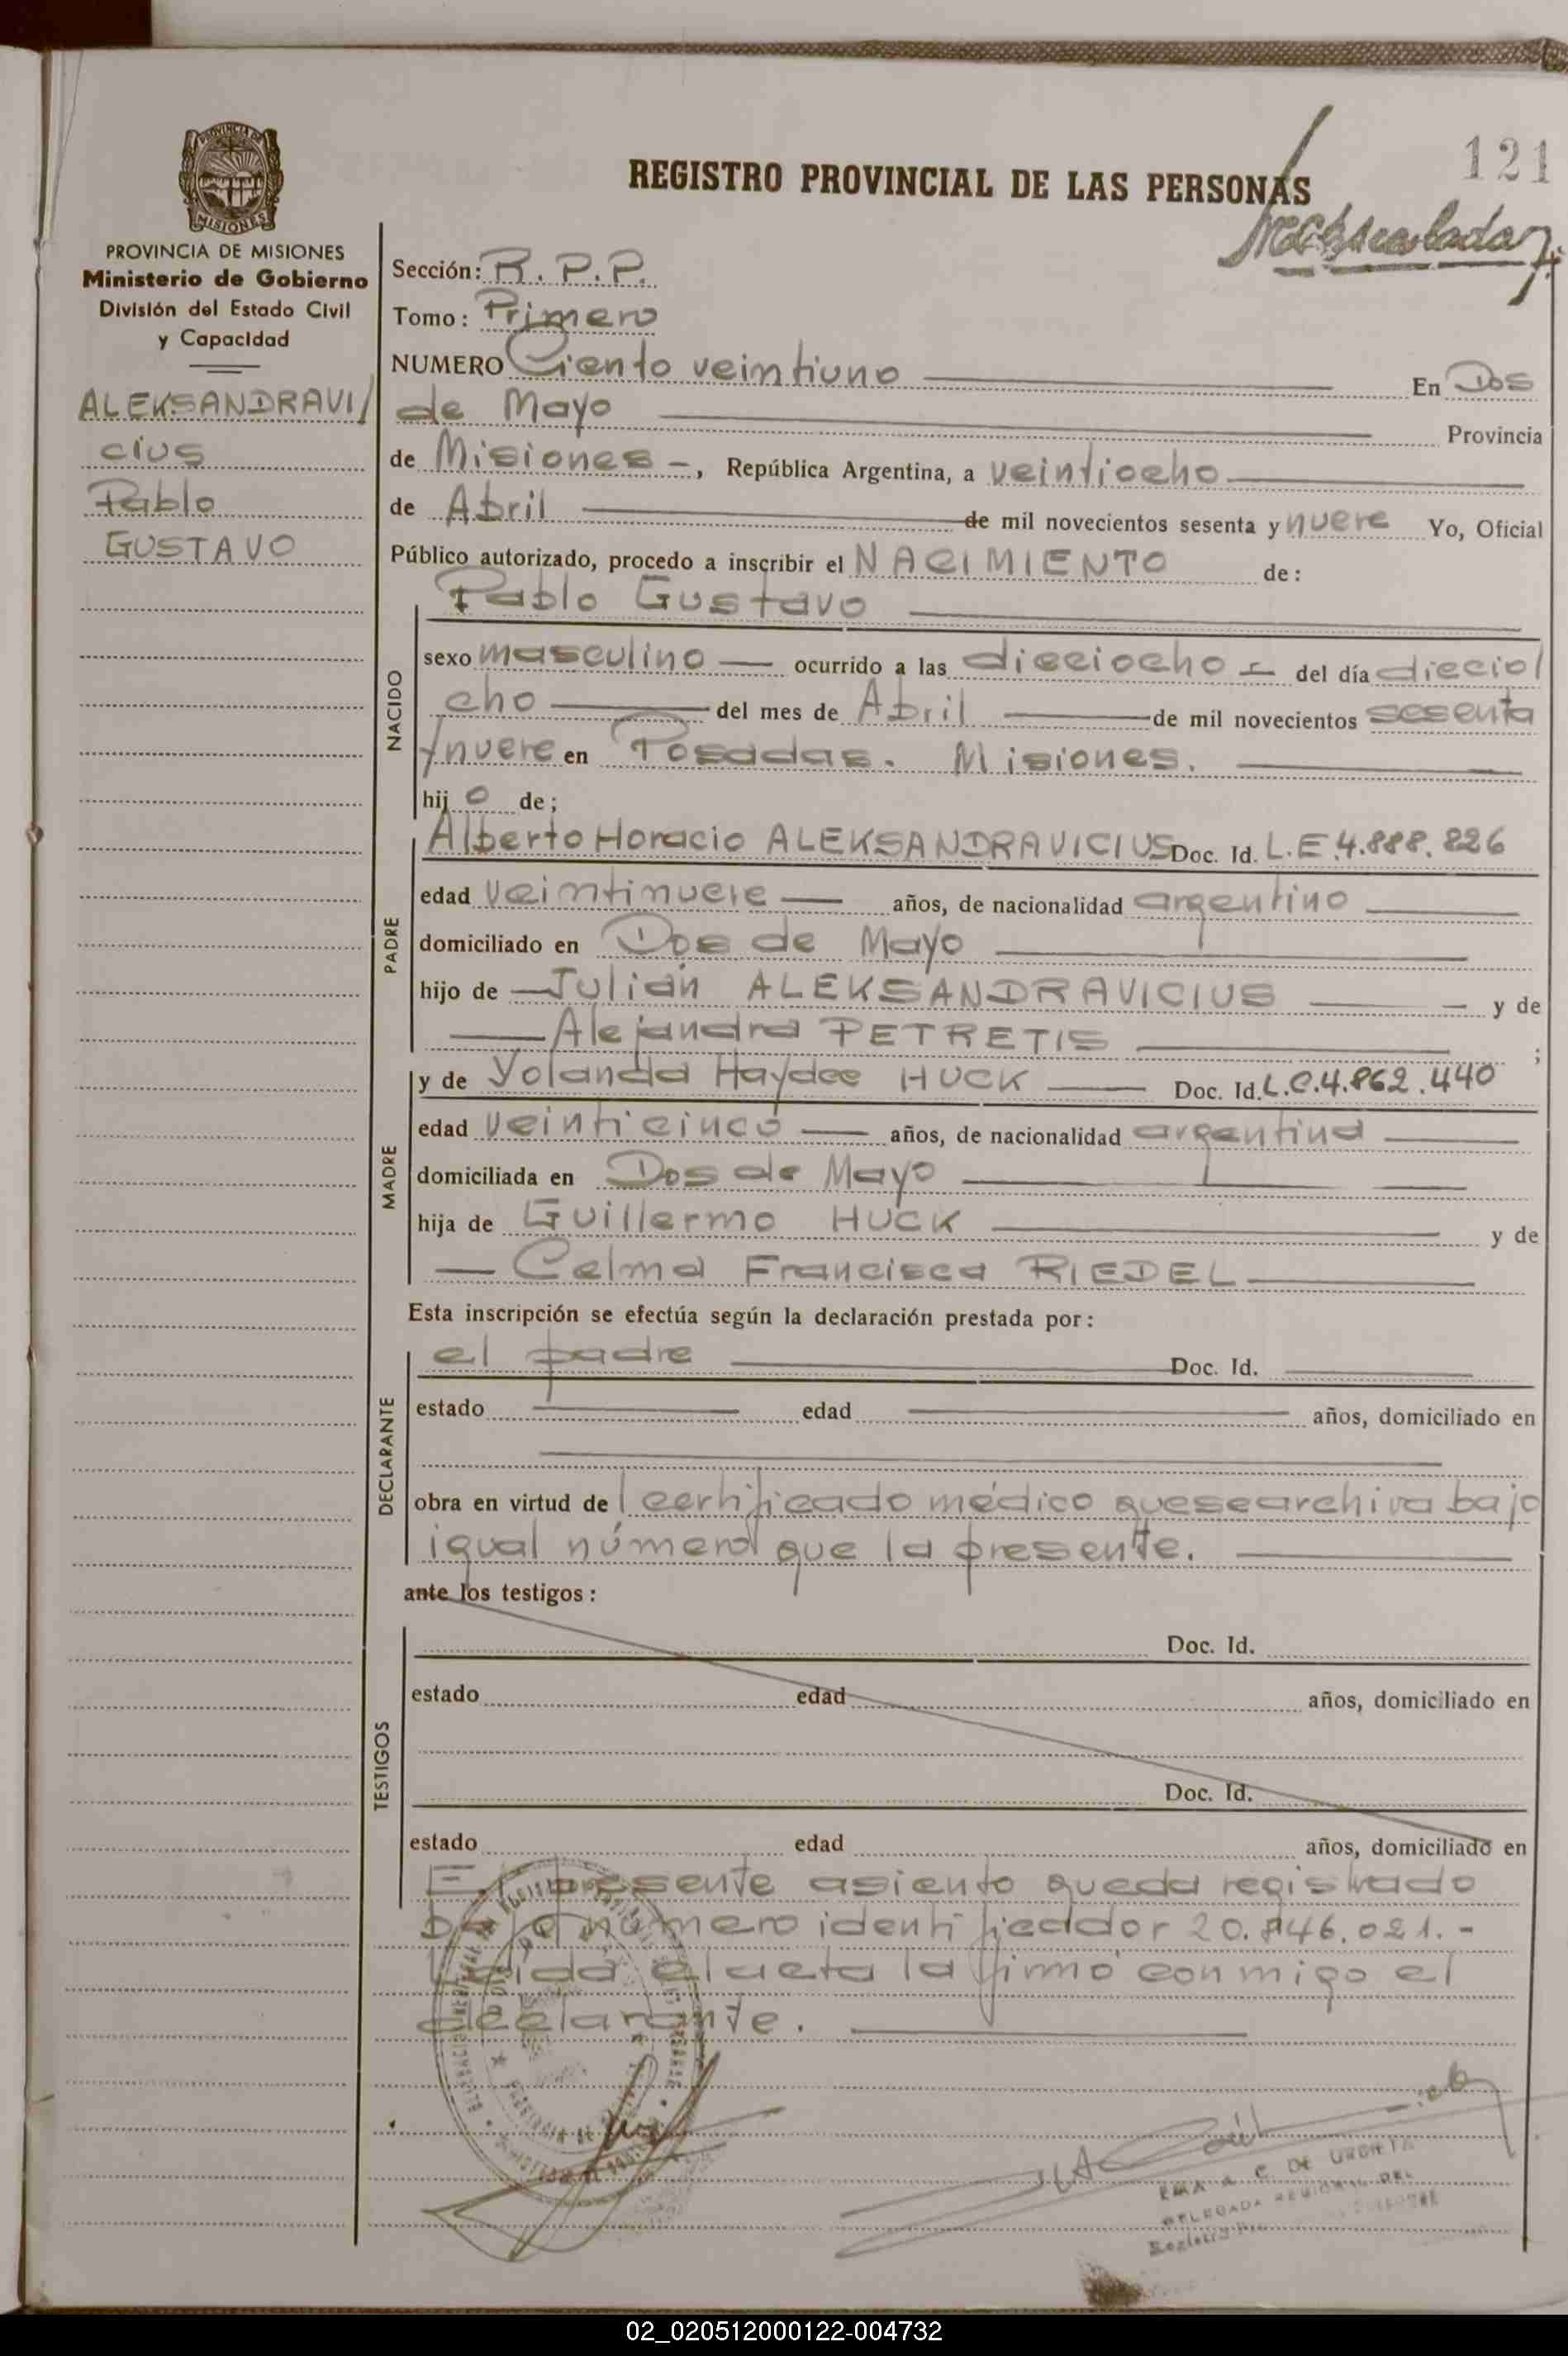 121
REGISTRO PROVINCIAL DE LAS PERSONAS
PROVINCIA DE
MISIONES
PROVINCIA DE MISIONES
Ministerio de Gobierno
División del Estado Civil
y Capacidad
ALEKSANDRAVI/
cius
Pablo
GUSTAVO
Sección: R. P. P.
Tomo: Primero
NUMERO Ciento veintiuno En Dos
de Mayo Provincia
de Misiones -, República Argentina, a veintiocho
de Abril de mil novecientos sesenta y nueve Yo, Oficial
Público autorizado, procedo a inscribir el NACIMIENTO de:
Pablo Gustavo
NACIDO
sexo masculino ocurrido a las dieciocho - del día diecio/
cho del mes de Abril de mil novecientos sesenta
y nueve en Posadas. Misiones.
hijo de;
PADRE
Alberto Horacio ALEKSANDRAVICIUS Doc. Id. L.E.4.888.826
edad veintinueve años, de nacionalidad argentino
domiciliado en Dos de Mayo
hijo de Julián ALEKSANDRAVICIUS y de
Alejandra PETRETIS ;
MADRE
y de Yolanda Haydee HUCK Doc. Id. L.C.4.862.440
edad veinticinco años, de nacionalidad argentina
domiciliada en Dos de Mayo
hija de Guillermo HUCK y de
Celma Francisca RIEDEL
Esta inscripción se efectúa según la declaración prestada por:
DECLARANTE
el padre Doc. Id.
estado edad años, domiciliado en
obra en virtud del certificado médico que se archiva bajo
igual número que la presente.
ante los testigos:
TESTIGOS
Doc. Id.
estado edad años, domiciliado en
Doc. Id.
estado edad años, domiciliado en
El presente asiento queda registrado
bajo número identificador 20. 021.-
Leida el acta la firmó conmigo el
declarante.
C. DE URBIETA
DELEGADA REGIONAL DEL
02_020512000122-004732